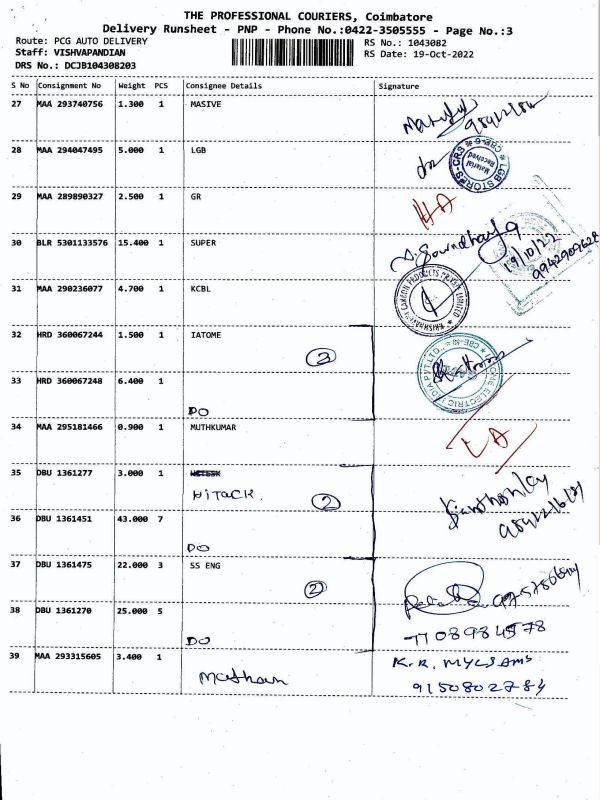 THE PROFESSIONAL COURIERS, Coimbatore
Delivery Runsheet - PNP - Phone No.:0422-3505555 - Page No.:3
Route: PCG AUTO DELIVERY
Staff: VISHVAPANDIAN
DRS No.: DCJB104308203
RS No.: 1043082
RS Date: 19-Oct-2022
S No Consignment No Weight PCS Consignee Details Signature
27 MAA 293740756 1.300 1 MASIVE
28 MAA 294047495 5.000 1 LGB
LGB STORES-CRS
CBE-6
Material Received
29 MAA 289890327 2.500 1 GR
30 BLR 5301133576 15.400 1 SUPER
19/10/22
31 MAA 290236077 4.700 1 KCBL
KRISHNAVENI CARBON PRODUCTS PRIVATE LIMITED
32 HRD 360067244 1.500 1 IATOME
33 HRD 360067248 6.400 1
DO
34 MAA 295181466 0.900 1 MUTHKUMAR
35 DBU 1361277 3.000 1
HITACK.
2
36 DBU 1361451 43.000 7
DO
37 DBU 1361475 22.000 3 SS ENG
2
38 DBU 1361270 25.000 5
DO
39 MAA 293315605 3.400 1
9150802784